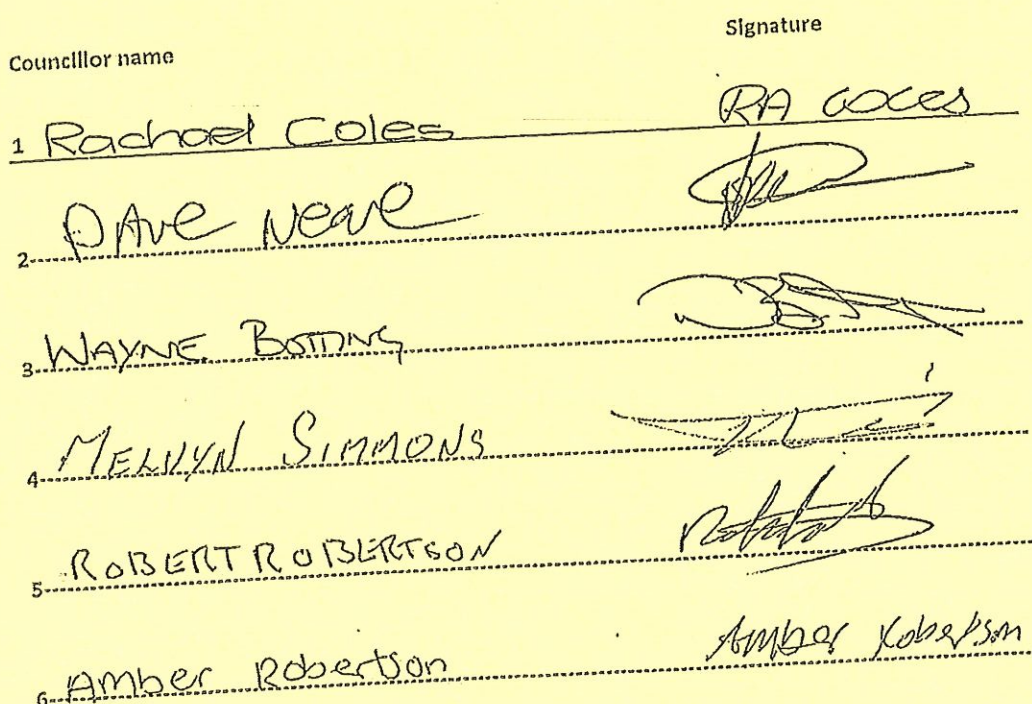 Councillor name Signature
1 Rachael Coles RA COLES
2 DAVE NEAVE
3 WAYNE BOTTING
4 MELVYN SIMMONS
5 ROBERT ROBERTSON
6 Amber Robertson Amber Robertson